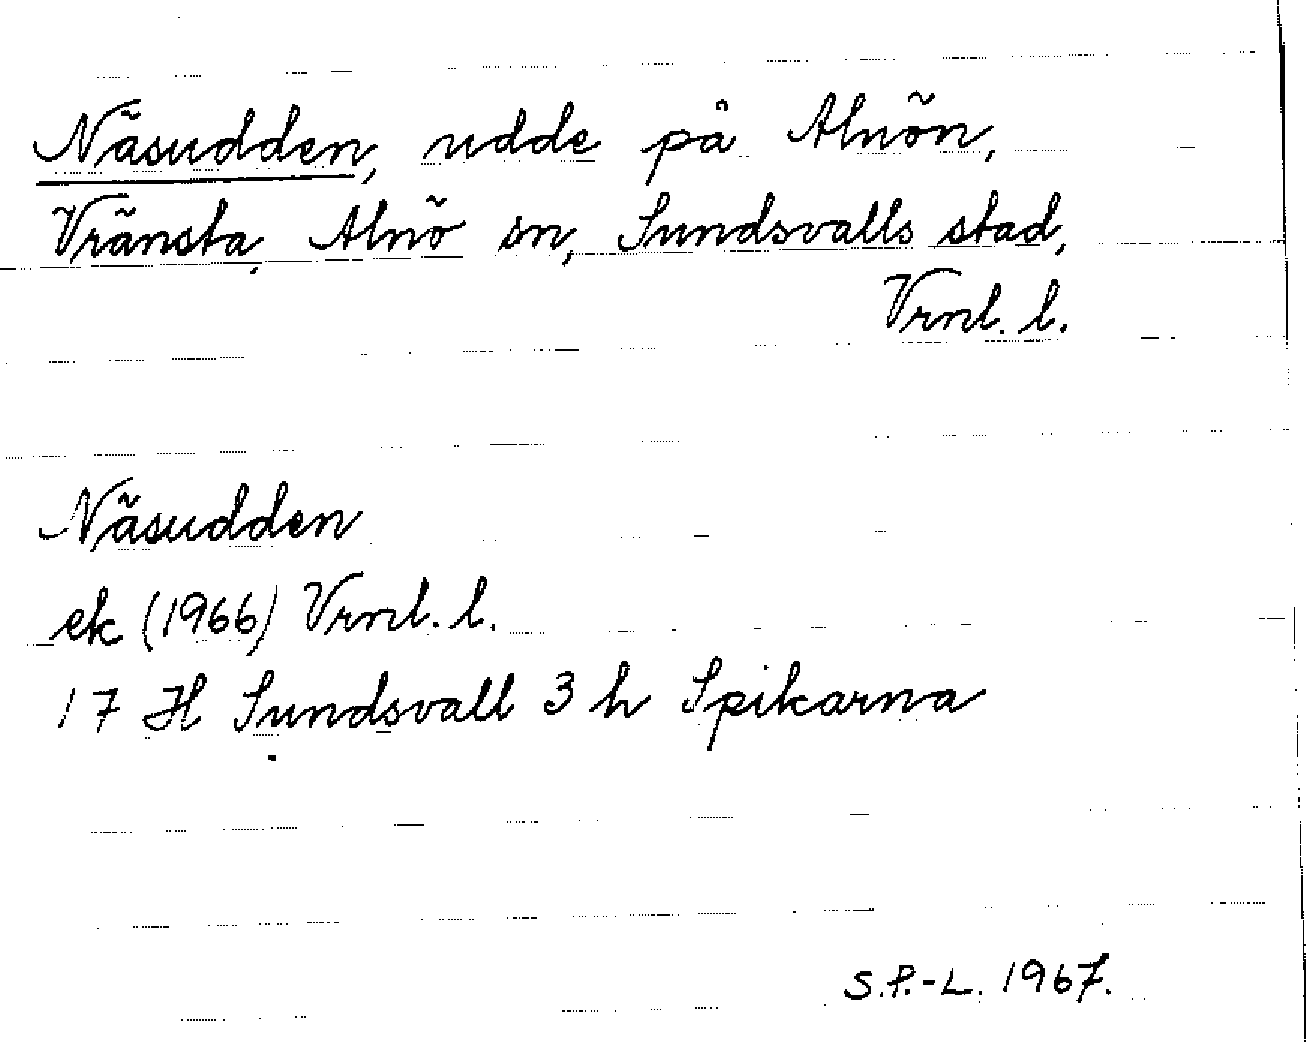 Näsudden, udde på Alnön,
Vränsta, Alnö sn, Sundsvalls stad,
Vrnl. l.
Näsudden
ek (1966) Vrnl. l.
17 H Sundsvall 3 h Spikarna
S.P.-L. 1967.